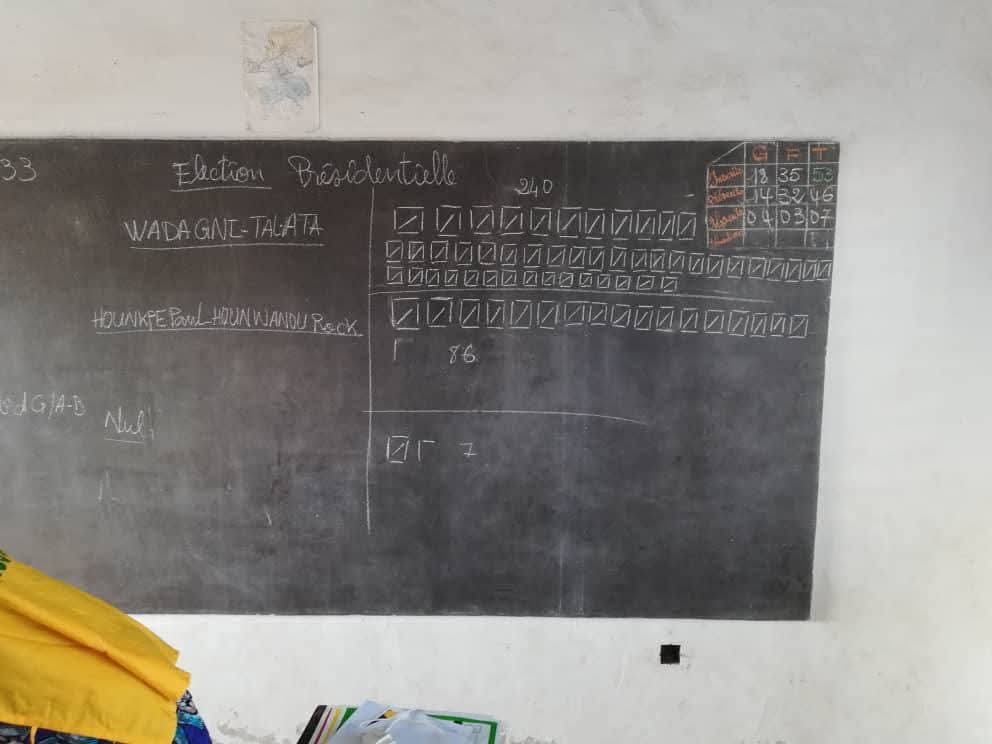 33
Election Présidentielle
240
WADAGNI-TALATA
HOUNKPE Paul-HOUNWANOU Rock
86
G/A-B
Nul
7
G F T
Inscrits 18 35 53
Présents 14 32 46
Absents 04 03 07